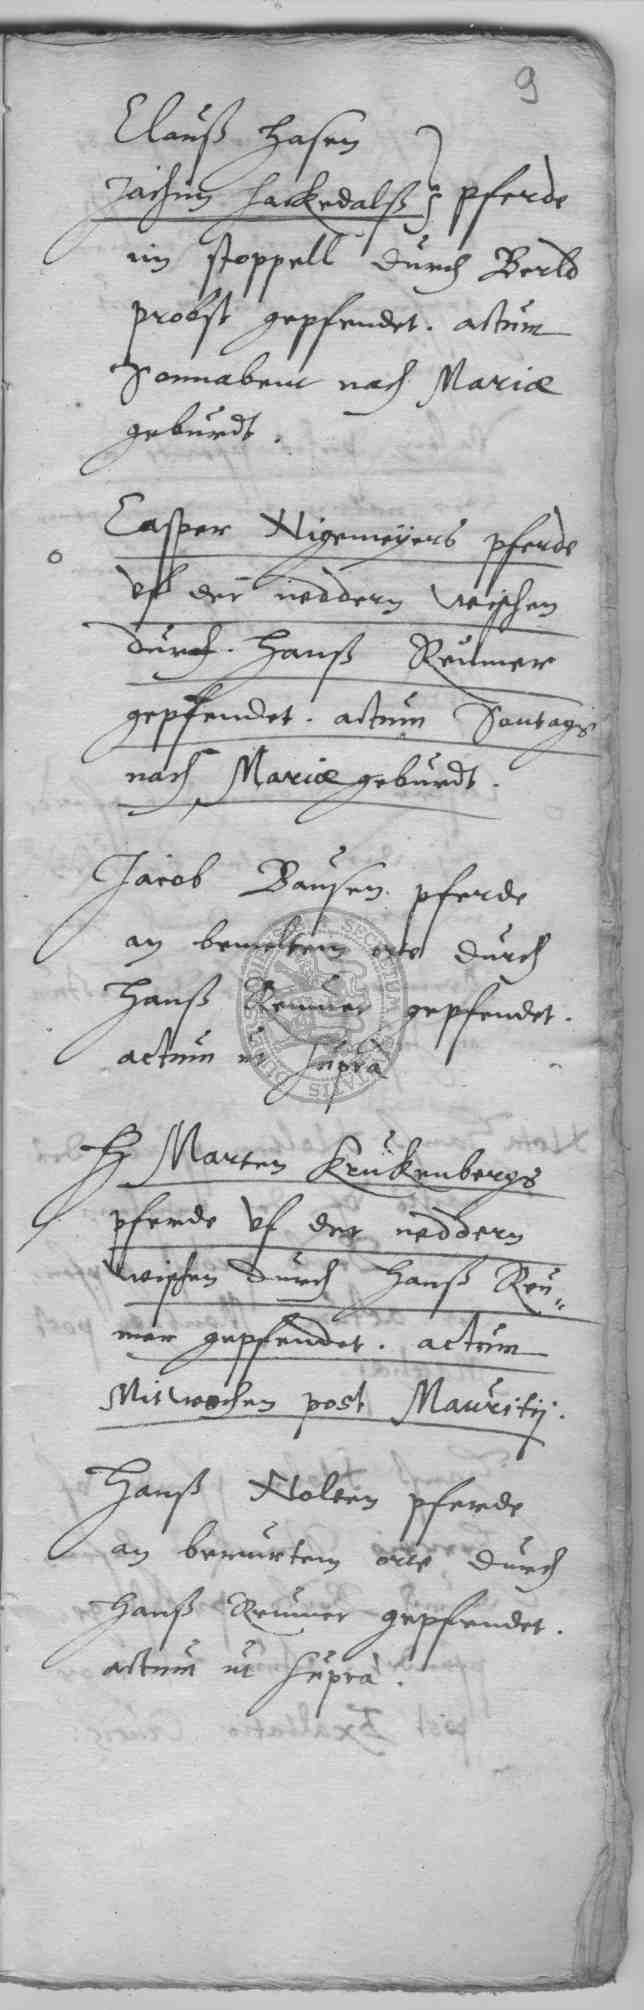 9
Clauß Hasen
Jachim Hackedalß } pferde
im stoppell durch Berld
probst gepfendet. actum
Sonnabent nach Mariæ
geburdt.
o Casper Nigemeyers pferde
uf der neddern weischen
durch. Hanß Reumer
gepfendet. actum Sontags
nach Mariæ geburdt.
Jacob Bausen pferde
an bemeltem orte durch
Hanß Reumer gepfendet.
actum ut suprà
H Marten Krukenbergs
pferde uf der neddern
wischen durch Hanß Reu„
mer gepfendet. actum
Mitwochen post Mauritij.
Hanß Nolten pferde
an berurtem orte durch
Hanß Reumer gepfendet.
actum ut suprà.